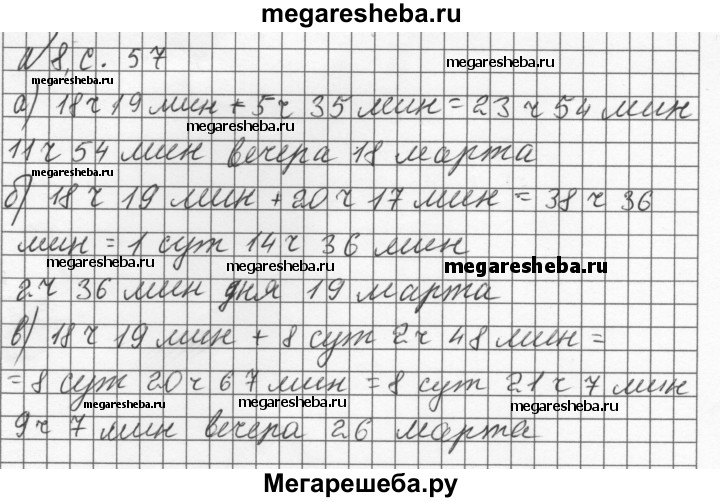 megaresheba.ru
№ 8, с. 57
megaresheba.ru
megaresheba.ru
а) 18 ч 19 мин + 5 ч 35 мин = 23 ч 54 мин
megaresheba.ru
megaresheba.ru
11 ч 54 мин вечера 18 марта
megaresheba.ru
б) 18 ч 19 мин + 20 ч 17 мин = 38 ч 36
мин = 1 сут 14 ч 36 мин
megaresheba.ru
megaresheba.ru
megaresheba.ru
2 ч 36 мин дня 19 марта
в) 18 ч 19 мин + 8 сут 2 ч 48 мин =
= 8 сут 20 ч 67 мин = 8 сут 21 ч 7 мин
megaresheba.ru
megaresheba.ru
megaresheba.ru
9 ч 7 мин вечера 26 марта
Мегарешеба.ру